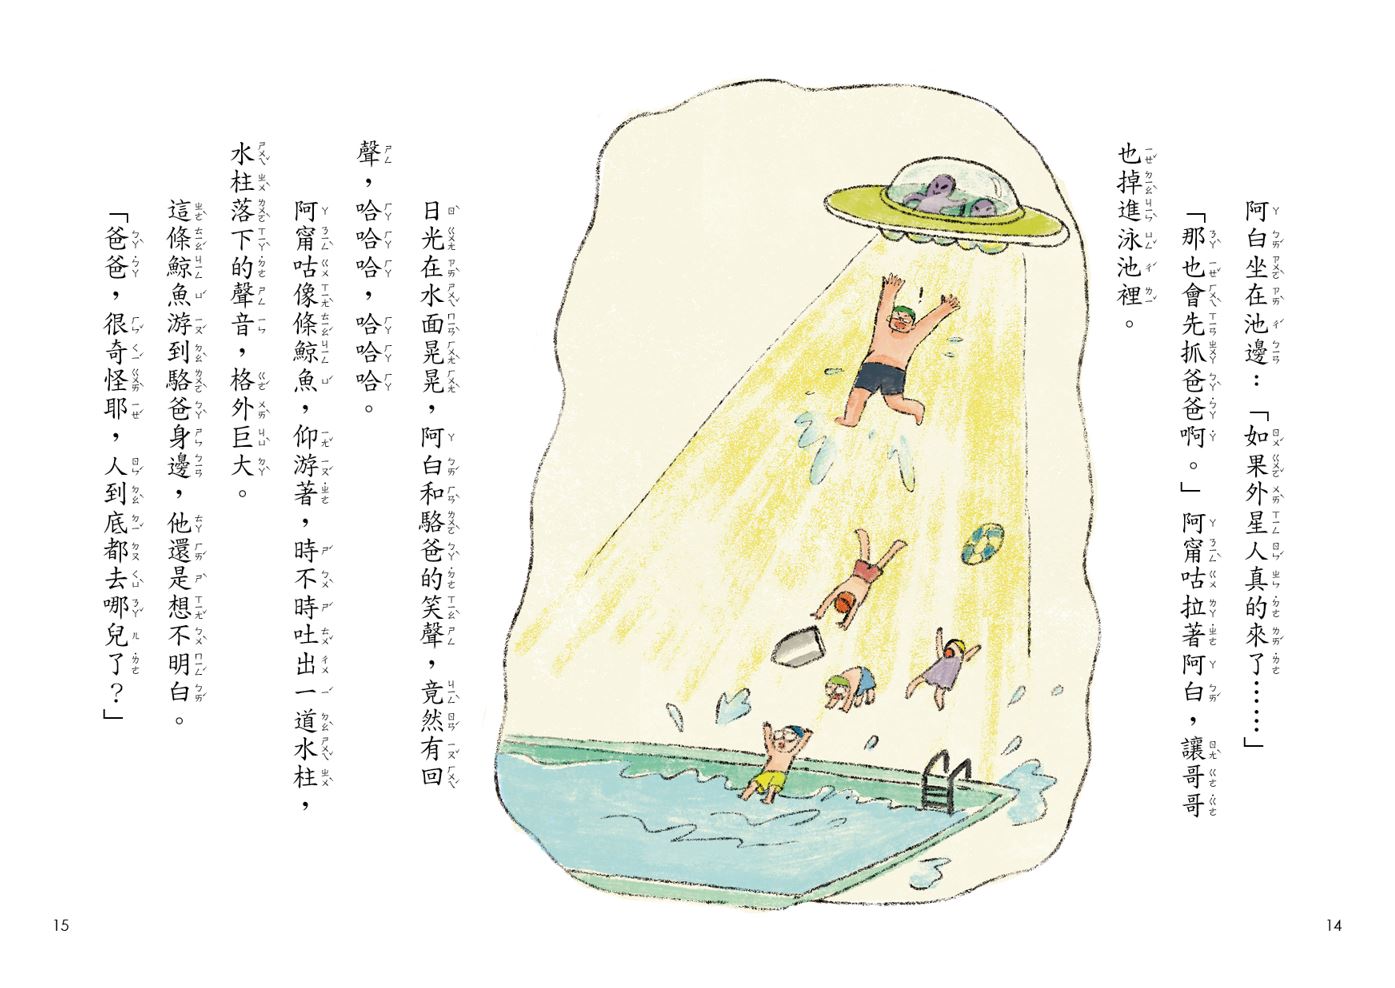 阿白坐在池邊：「如果外星人真的來了……」
「那也會先抓爸爸啊。」阿甯咕拉著阿白，讓哥哥
也掉進泳池裡。
14
日光在水面晃晃，阿白和駱爸的笑聲，竟然有回
聲，哈哈哈，哈哈哈。
阿甯咕像條鯨魚，仰游著，時不時吐出一道水柱，
水柱落下的聲音，格外巨大。
這條鯨魚游到駱爸身邊，他還是想不明白。
「爸爸，很奇怪耶，人到底都去哪兒了？」
15